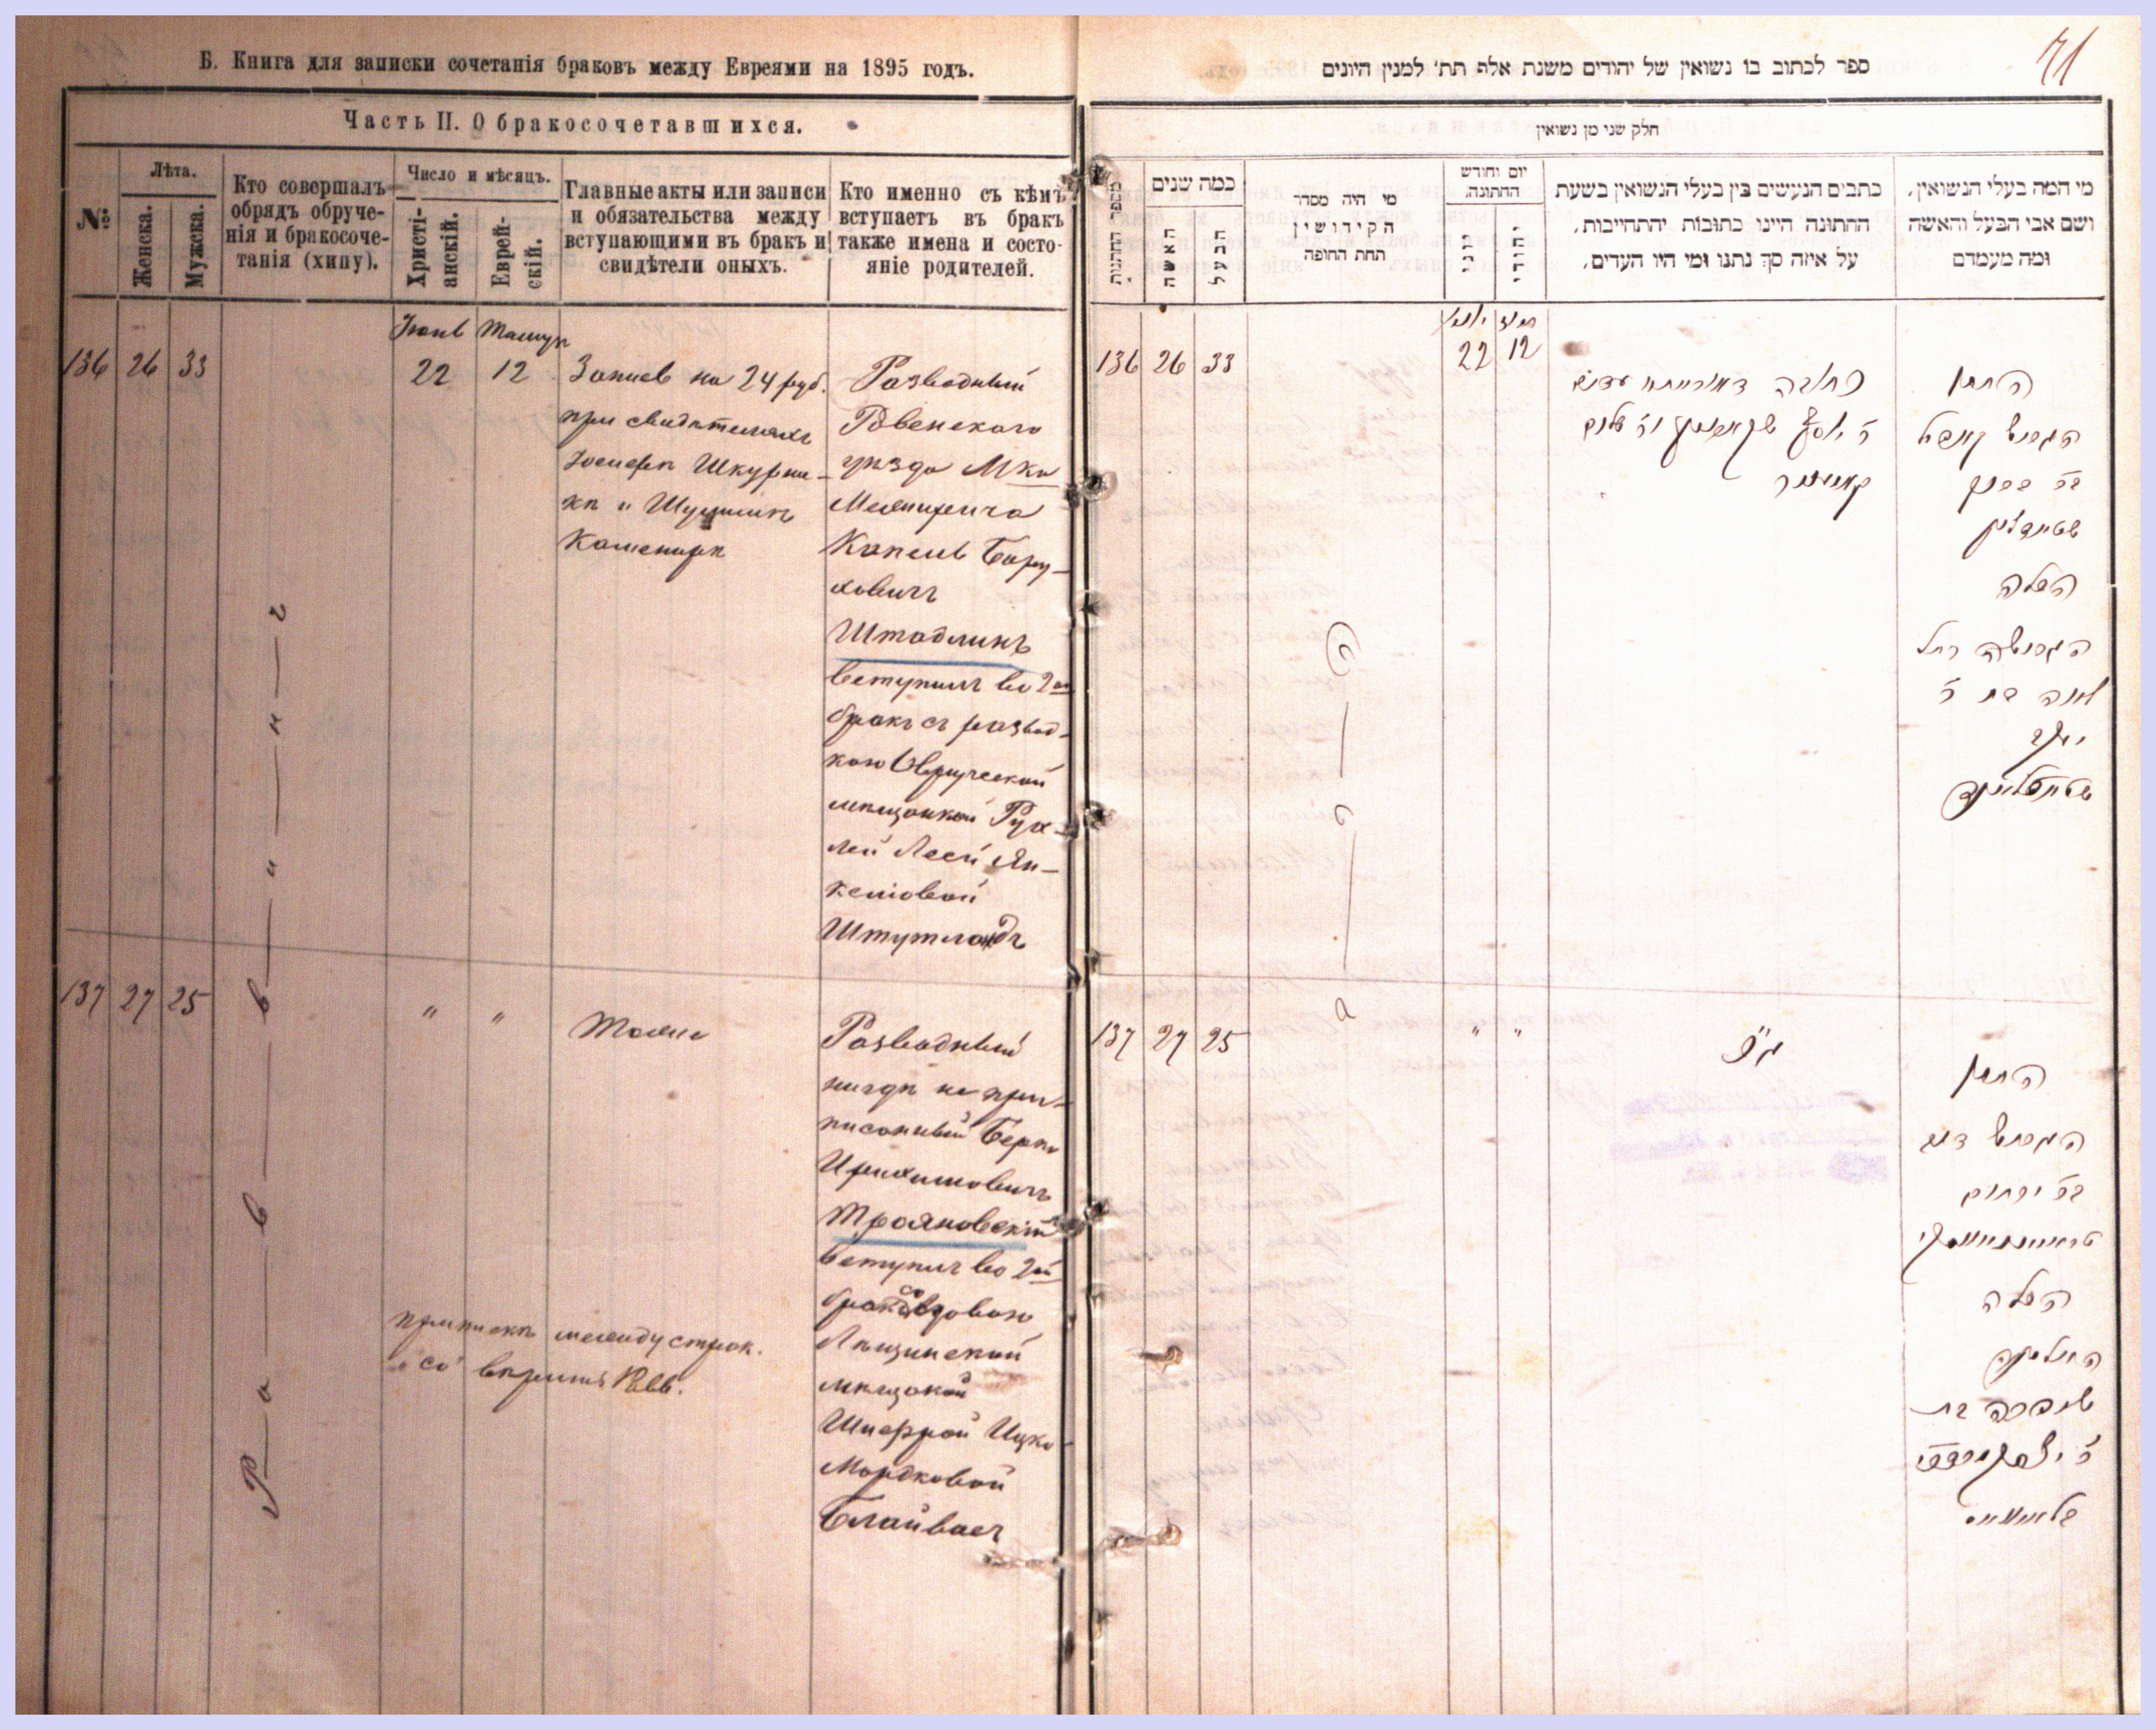 Б. Книга для записки сочетанія браковъ между Евреями на 1895 годъ.
Часть II. О бракосочетавшихся.
№
Лѣта.
Женска.
Мужска.
Кто совершалъ
обрядъ обруче-
нія и бракосоче-
танія (хипу).
Число и мѣсяцъ.
Христі-
анскій.
Еврей-
скій.
Главные акты или записи
и обязательства между
вступающими въ бракъ и
свидѣтели оныхъ.
Кто именно съ кѣмъ
вступаетъ въ бракъ
также имена и состо-
яніе родителей.
Іюнь Тамуз
136 26 33
22 12
Запись на 24 руб.
при свидѣтеляхъ
Іосифѣ Шкурни-
кѣ и Шулимѣ
Каменирѣ
Разводный
Ровенскаго
уѣзда М-ка
Межирича
Капель Бару-
ховичъ
Штадликъ
вступилъ во 2ой
бракъ съ развод-
кою Овручской
мѣщанкой Рух-
лей Леей Ян-
келіовой
Штутландъ
137 27 25
" "
Тоже
Разводный
нигдѣ не при-
писанный Берко
Ирихимовичъ
Трояновскій
вступилъ во 2й
бракъ со вдовою
мѣщанкой
Шифрой Ицко-
Мордковой
Блайвасъ
приписка между строк.
"со" вѣрить Равв.
Р а в в и н ъ
71
ספר לכתוב בו נשואין של יהודים משנת אלף תת׳ למנין היונים
חלק שני מן נשואין
מספר החתנות
כמה שנים
האשה
הבעל
מי היה מסדר
הקידושין
תחת החופה
יום וחודש
החתונה.
יוני
יהודי
כתבים הנעשים בין בעלי הנשואין בשעת
החתונה היינו כתובות יהתחייבות,
על איזה סך נתנו ומי היו העדים.
מי המה בעלי הנשואין,
ושם אבי הבעל והאשה
ומה מעמדם
136 26 33
22 12
החתן
הגרוש קאפיל
בר ברוך
הכלה
הגרושה רחל
לאה בת ר׳
יעקב
137 27 25
" "
החתן
הגרוש דוב
בר ירחום
הכלה
האלמנה
שיפרה בת